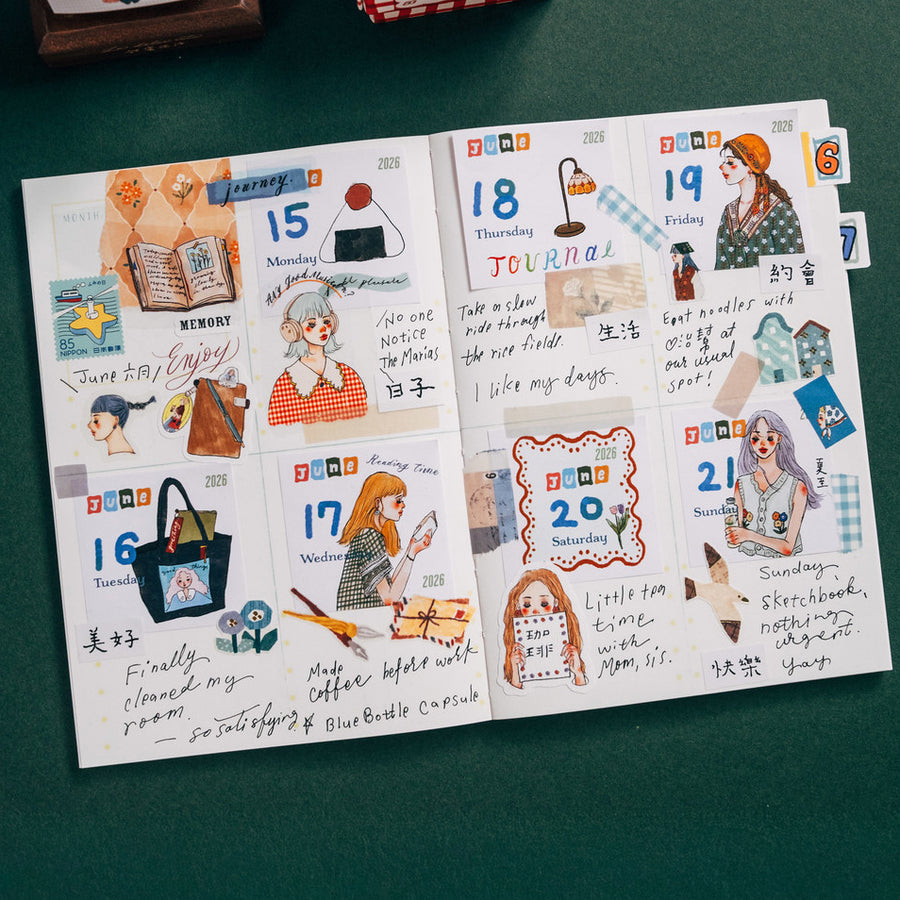 MONTH
journey.
2026
15
Monday
MEMORY
85
NIPPON 日本郵便
Enjoy
June 六月
No one
Notice
The Marias
日子
June
2026
16
Tuesday
good things
美好
Finally
cleaned my
room.
— so satisfying
June
Reading Time
17
2026
Made
coffee before work
☆ Blue Bottle Capsule
June
2026
18
Thursday
JOURNAL
Take a slow
ride through
the rice fields.
生活
I like my days.
June
2026
19
Friday
約會
Eat noodles with
at
our usual
spot!
2026
June
20
Saturday
咖
啡
Little tea
time
with
Mom, sis.
June
21
Sunday
夏至
Sunday,
sketchbook,
nothing
urgent.
快樂 Yay
6
7